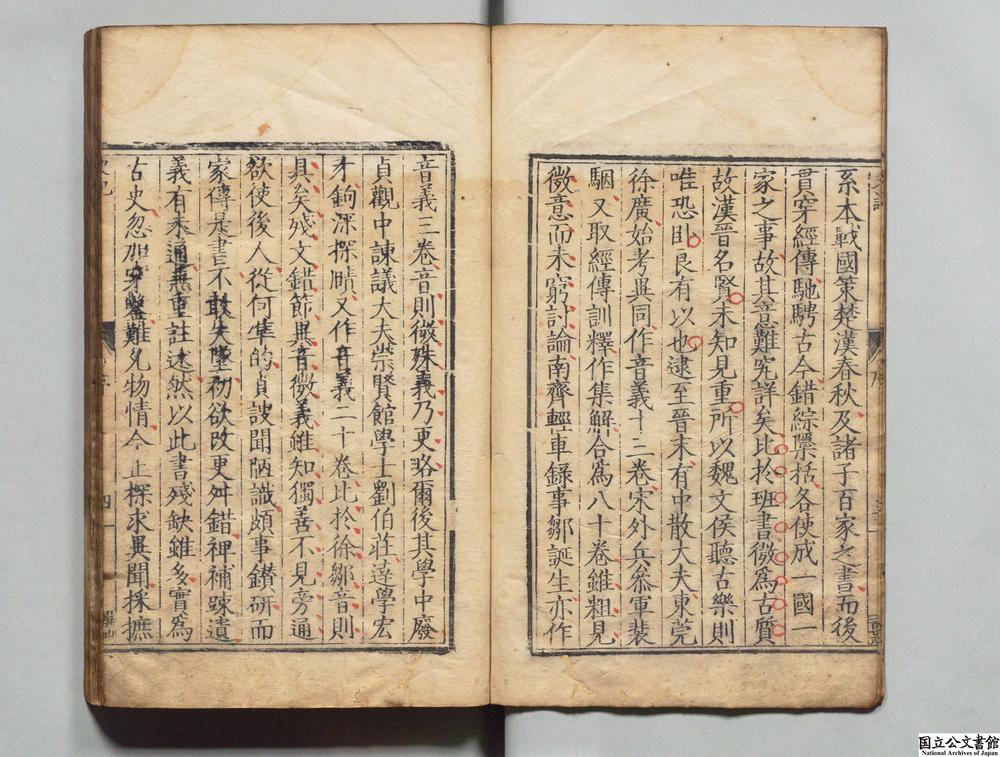 系本戰國策楚漢春秋及諸子百家之書而後
貫穿經傳馳騁古今錯綜隱括各使成一國一
家之事故其意難究詳矣比於班書微為古質
故漢晉名賢未知見重所以魏文侯聽古樂則
唯恐臥良有以也逮至晉末有中散大夫東莞
徐廣始考異同作音義十三卷宋外兵叅軍裴
駰又取經傳訓釋作集解合為八十卷雖粗見
微意而未窮討論南齊輕車錄事鄒誕生亦作
音義三卷音則微殊義乃更略爾後其學中廢
貞觀中諫議大夫崇賢館學士劉伯莊達學宏
才鉤深探賾又作音義二十卷比於徐鄒音則
具矣殘文錯節異音微義雖知獨善不見旁通
欲使後人從何準的貞謏聞陋識頗事鑚研而
家傳是書不敢失墜初欲改更舛錯裨補踈遺
義有未通兼重註述然以此書殘缺雖多實為
古史忽加穿鑿難允物情今止探求異聞採摭
四
国立公文書館
National Archives of Japan